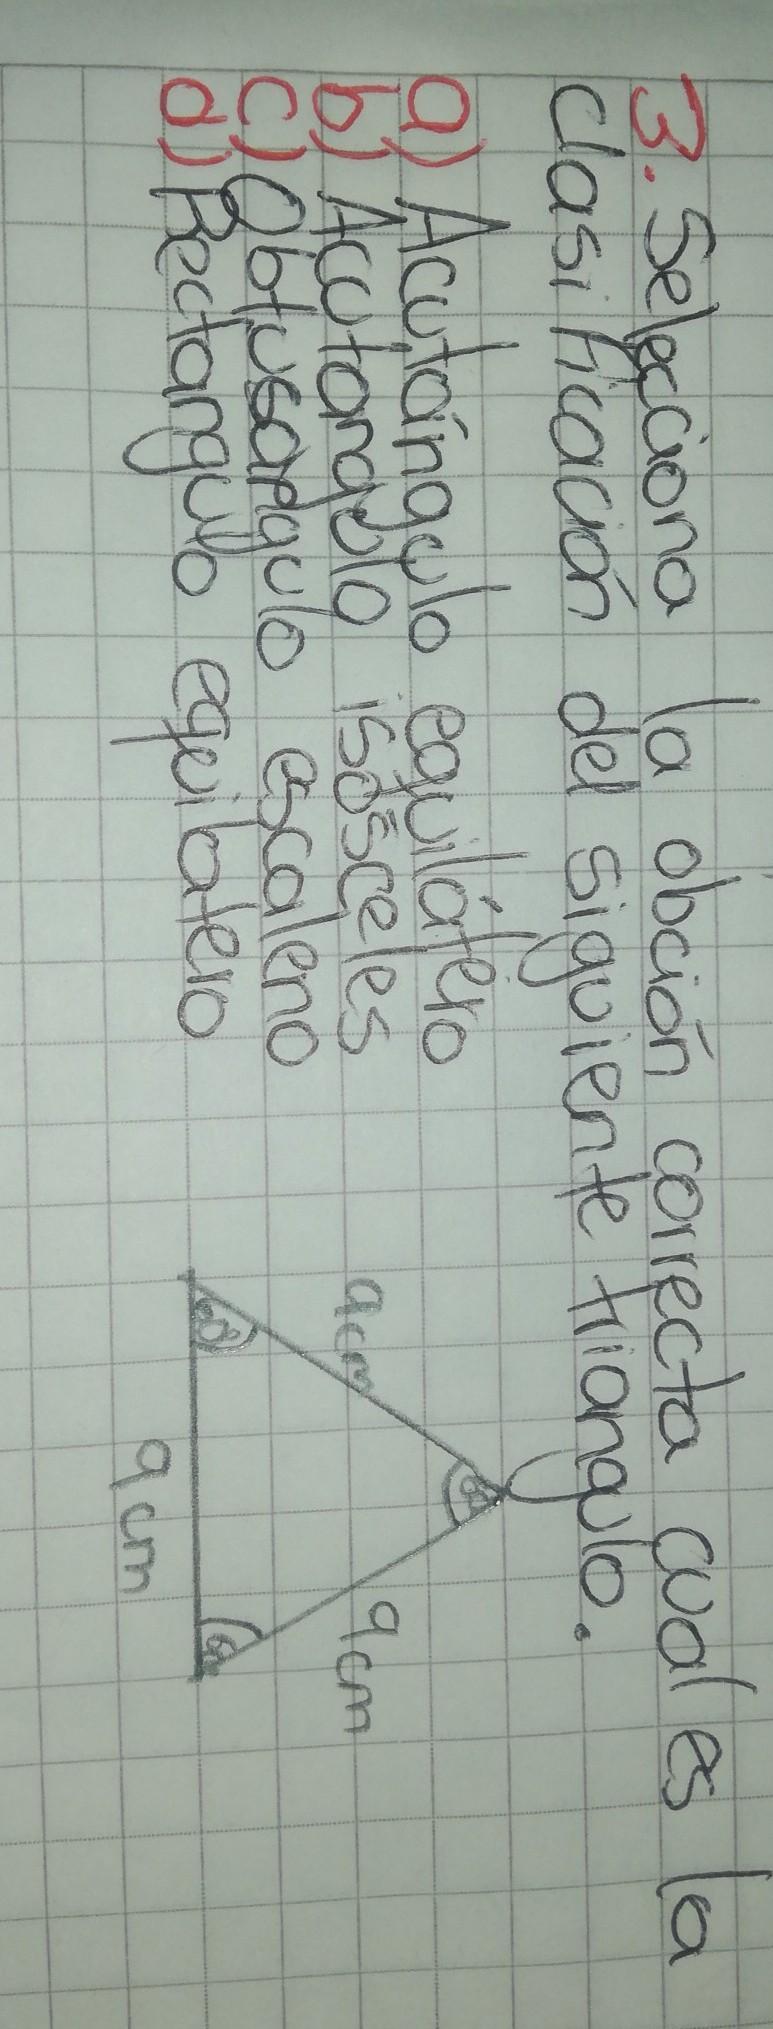 3. Selecciona la obción correcta cual es la
clasificación del siguiente triangulo.
a) Acutángulo equilátero
b) Acutangulo isósceles
c) Obtusangulo escaleno
d) Rectangulo equilatero
9cm
9cm
9cm
60°
60°
60°